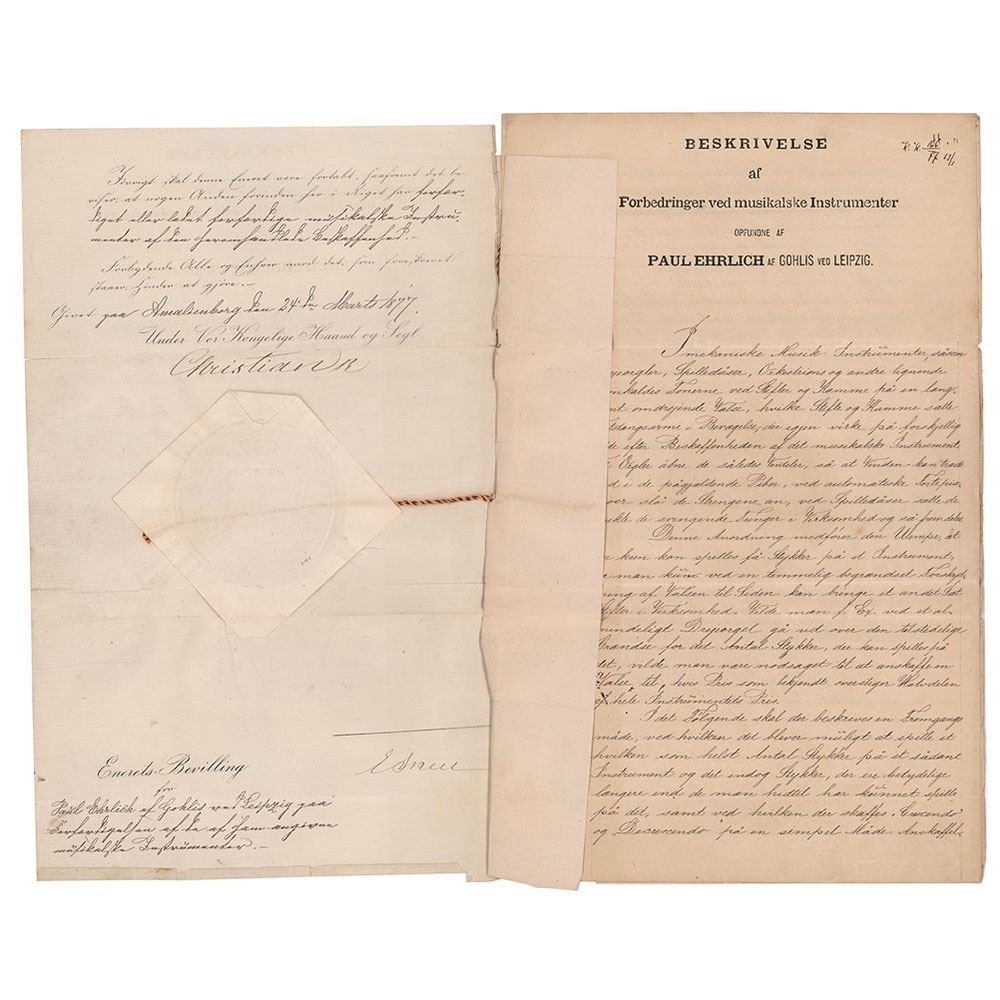 Iøvrigt skal denne Eneret være fortabt, saafremt det be-
vises, at nogen Anden forinden her i Riget har forfær-
diget eller ladet forfærdige musikalske Instru-
menter af den heromhandlede Beskaffenhed.-
Forbydende Alle og Enhver imod det, som foreskrevet
staaer, Hinder at gjøre.-
Givet paa Amalienborg den 24de Marts 1877.
Under Vor Kongelige Haand og Segl.
Christian R
Enerets-Bevilling
for
Paul Ehrlich af Gohlis ved Leipzig paa
Forfærdigelsen af de af ham angivne
musikalske Instrumenter.-
BESKRIVELSE
af
Forbedringer ved musikalske Instrumenter
OPFUNDNE AF
PAUL EHRLICH AF GOHLIS VED LEIPZIG.
I mekaniske Musik-Instrumenter, såsom
Spilledåser, Orkestrions og andre lignende
Tonerne ved Stifter og Kamme på en lang-
omdrejende Valse, hvilke Stifte og Kamme sætte
i Bevægelse, der igjen virke på forskjellig
efter Beskaffenheden af det musikalske Instrument.
I Orgler åbne de således Ventiler, så at Vinden kan træde
i de pågjældende Piber, ved automatiske Fortepia-
slå de Strengene an, ved Spilledåser sætte de
de svingende Tunger i Virksomhed og så fremdeles.
Denne Anordning medfører den Ulempe, at
kun kan spilles få Stykker på et Instrument,
man kun ved en temmelig begrændset Forskyd-
ning af Valsen til Siden kan bringe et andet Sæt
Stifter i Virksomhed. Vilde man f. Ex. ved et al-
mindeligt Drejeorgel gå ud over den tilstedelige
Grændse for det Antal Stykker, der kan spilles på
det, vilde man være nødsaget til at anskaffe en
Valse til, hvis Pris som bekjendt overstiger Halvdelen
af hele Instrumentets Pris.
I det Følgende skal der beskrives en Fremgangs-
måde, ved hvilken det bliver muligt at spille et
hvilken som helst Antal Stykker på et sådant
Instrument og det endog Stykker, der ere betydelige
længere end de man hidtil har kunnet spille
på det, samt ved hvilken der skaffes Crescendo
og Decrescendo på en simpel Måde. Anskaffel-